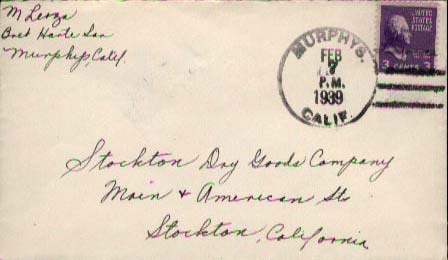 M Leoza
Bret Harte Inn
Murphys, Calif.
MURPHYS.
FEB
7
P.M.
1939
CALIF.
UNITED STATES
POSTAGE
3 CENTS 3
Stockton Dry Goods Company
Main + American Sts
Stockton, California